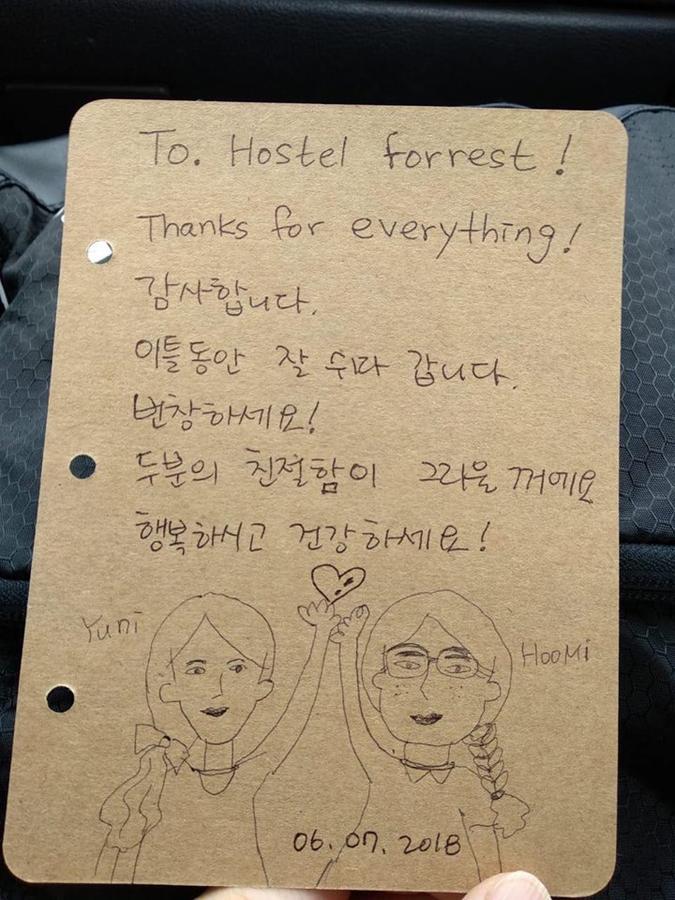 To. Hostel forrest!
Thanks for everything!
감사합니다.
이틀동안 잘 쉬다 갑니다.
번창하세요!
두분의 친절함이 그리울 꺼에요
행복하시고 건강하세요!
Yumi
HooMi
06. 07. 2018